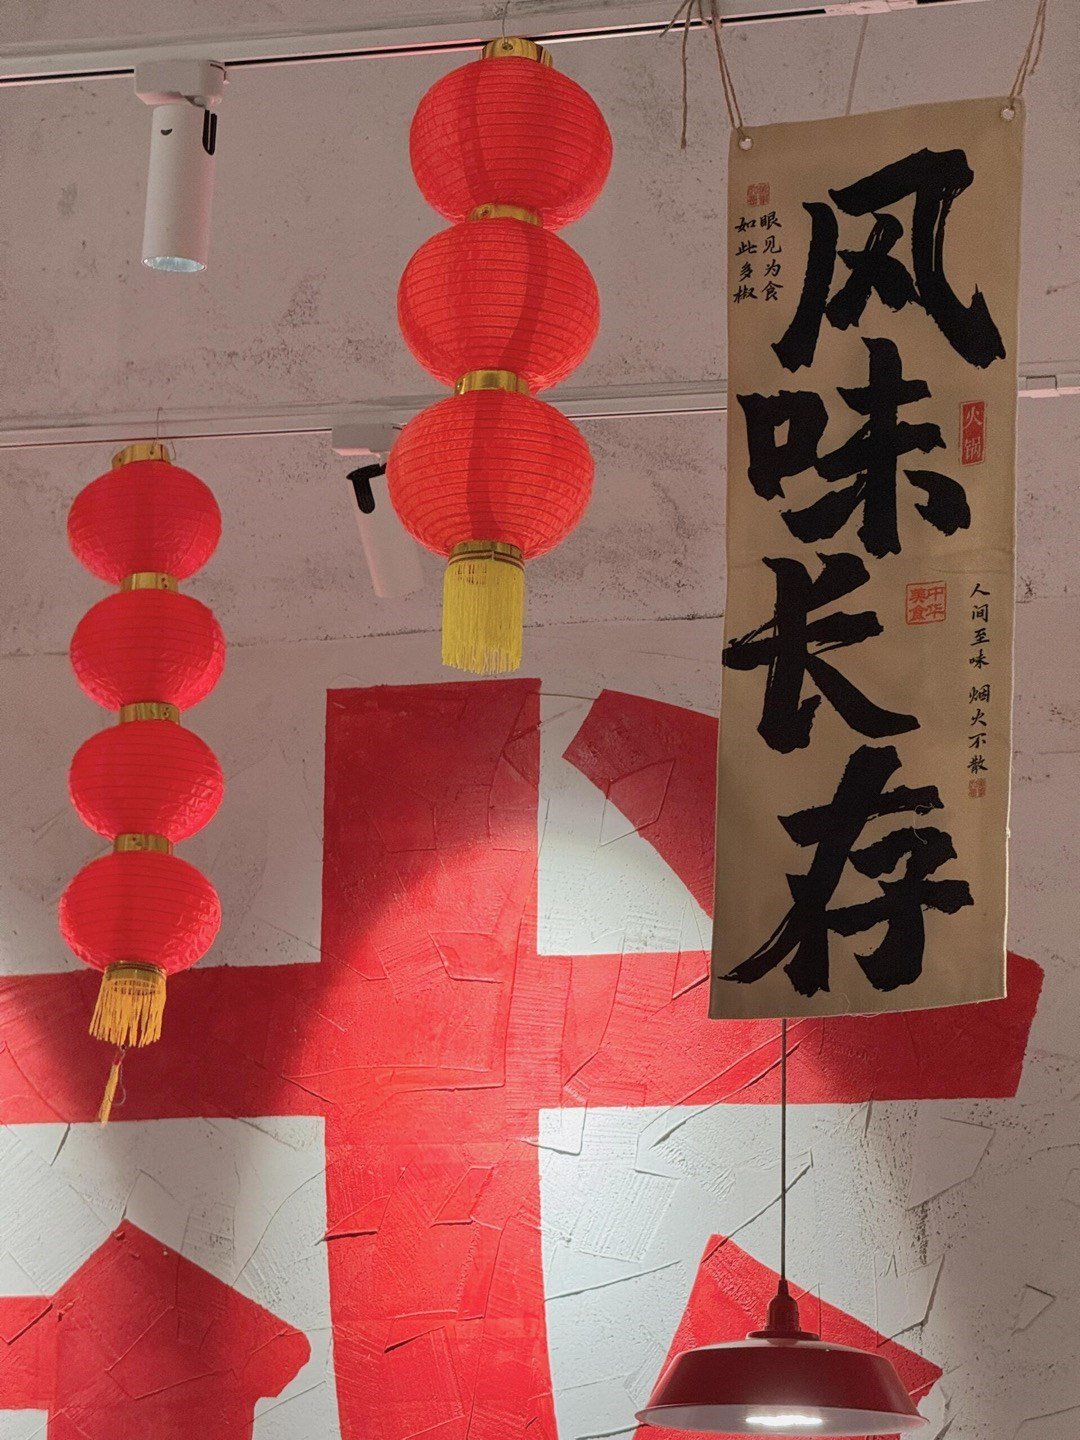 风味长存
眼见为食
如此多椒
火锅
中华
美食
人间至味 烟火不散